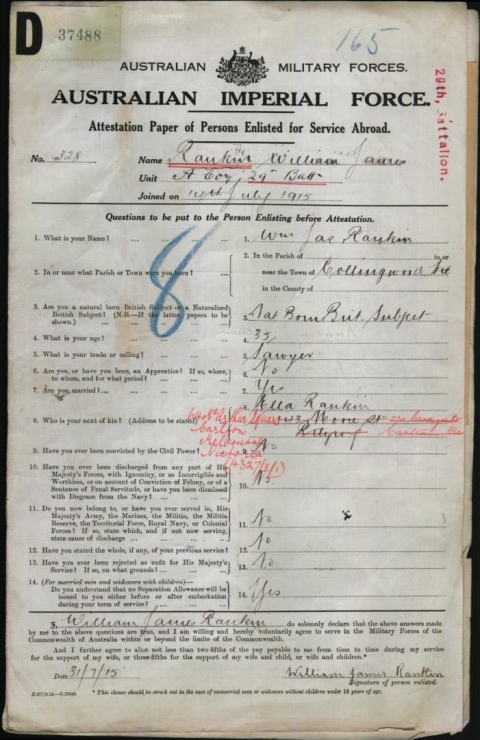 D 37488
165
AUSTRALIAN MILITARY FORCES.
AUSTRALIAN IMPERIAL FORCE.
29th. Battalion.
Attestation Paper of Persons Enlisted for Service Abroad.
No. 328 Name Rankin William James
Unit A Coy 29th Battn
Joined on 14th July 1915
Questions to be put to the Person Enlisting before Attestation.
1. What is your Name? ... ... ... ... 1. Wm Jas Rankin
2. In or near what Parish or Town were you born? ... 2. In the Parish of in or near the Town of Collingwood Vic in the County of
8
3. Are you a natural born British Subject or a Naturalized British Subject? (N.B.—If the latter, papers to be shown.) ... 3. Nat Born Brit. Subject
4. What is your age? ... ... ... 4. 35
5. What is your trade or calling? ... ... 5. Sawyer
6. Are you, or have you been, an Apprentice? If so, where, to whom, and for what period? ... ... 6. No
7. Are you married? ... ... ... 7. Yes
8. Who is your next of kin? (Address to be stated) 8. Ella Rankin
143 Moor St
Fitzroy
Carlton
Melbourne
Victoria
9. Have you ever been convicted by the Civil Power? ... 9. No
10. Have you ever been discharged from any part of His Majesty's Forces, with Ignominy, or as Incorrigible and Worthless, or on account of Conviction of Felony, or of a Sentence of Penal Servitude, or have you been dismissed with Disgrace from the Navy? ... 10. No
11. Do you now belong to, or have you ever served in, His Majesty's Army, the Marines, the Militia, the Militia Reserve, the Territorial Force, Royal Navy, or Colonial Forces? If so, state which, and if not now serving, state cause of discharge ... 11. No
12. Have you stated the whole, if any, of your previous service? 12. No
13. Have you ever been rejected as unfit for His Majesty's Service? If so, on what grounds? ... 13. No
14. (For married men and widowers with children)—
Do you understand that no Separation Allowance will be issued to you either before or after embarkation during your term of service? ... 14. Yes
I, William James Rankin do solemnly declare that the above answers made
by me to the above questions are true, and I am willing and hereby voluntarily agree to serve in the Military Forces of the
Commonwealth of Australia within or beyond the limits of the Commonwealth.
And I further agree to allot not less than two-fifths of the pay payable to me from time to time during my service
for the support of my wife, or three-fifths for the support of my wife and child, wife and children.*
Date 31/7/15 William James Rankin
Signature of person enlisted.
* This clause should be struck out in the case of unmarried men or widowers without children under 18 years of age.